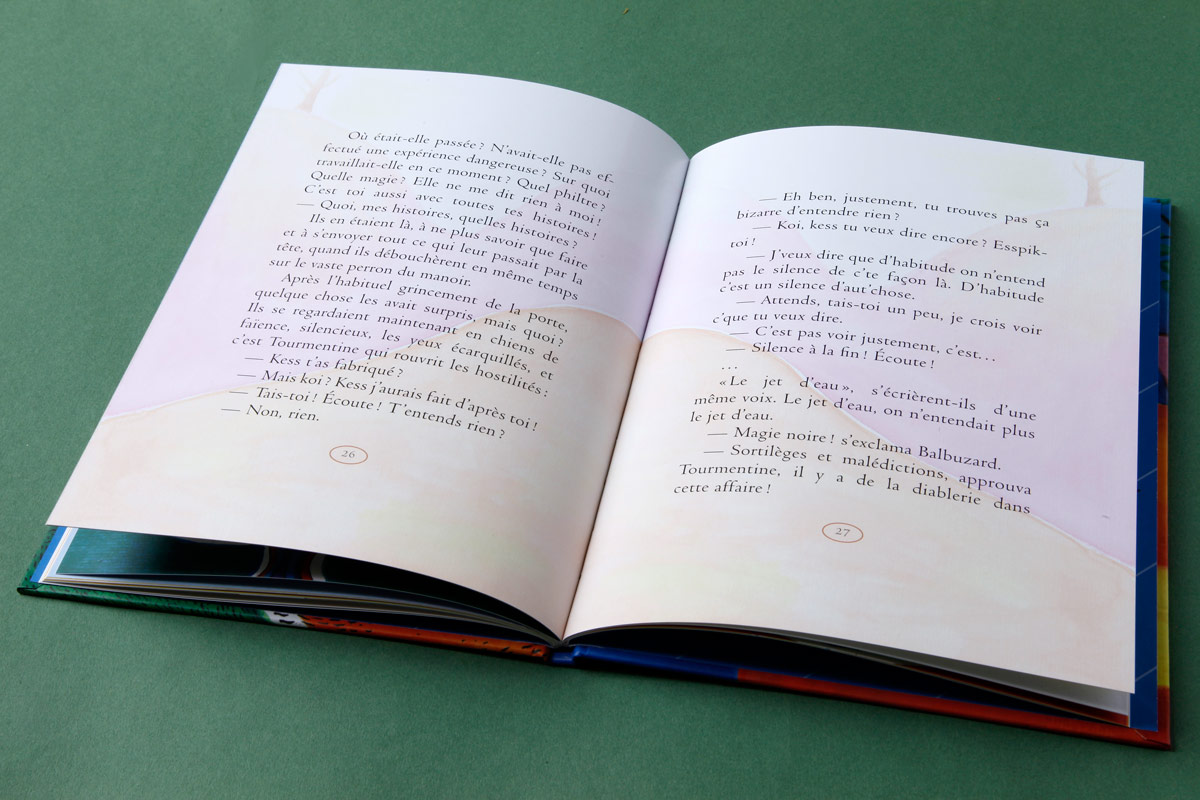 Où était-elle passée ? N'avait-elle pas ef-
fectué une expérience dangereuse ? Sur quoi
travaillait-elle en ce moment ? Quel philtre ?
Quelle magie ? Elle ne me dit rien à moi !
C'est toi aussi avec toutes tes histoires !
— Quoi, mes histoires, quelles histoires ?
Ils en étaient là, à ne plus savoir que faire
et à s'envoyer tout ce qui leur passait par la
tête, quand ils débouchèrent en même temps
sur le vaste perron du manoir.
Après l'habituel grincement de la porte,
quelque chose les avait surpris, mais quoi ?
Ils se regardaient maintenant en chiens de
faience, silencieux, les yeux écarquillés, et
c'est Tourmentine qui rouvrit les hostilités :
— Kess t'as fabriqué ?
— Mais koi ? Kess j'aurais fait d'après toi !
— Tais-toi ! Écoute ! T'entends rien ?
— Non, rien.
26
— Eh ben, justement, tu trouves pas ça
bizarre d'entendre rien ?
— Koi, kess tu veux dire encore ? Esspik-
toi !
— J'veux dire que d'habitude on n'entend
pas le silence de c'te façon là. D'habitude
c'est un silence d'aut'chose.
— Attends, tais-toi un peu, je crois voir
c'que tu veux dire.
— C'est pas voir justement, c'est…
— Silence à la fin ! Écoute !
…
« Le jet d'eau », s'écrièrent-ils d'une
même voix. Le jet d'eau, on n'entendait plus
le jet d'eau.
— Magie noire ! s'exclama Balbuzard.
— Sortilèges et malédictions, approuva
Tourmentine, il y a de la diablerie dans
cette affaire !
27